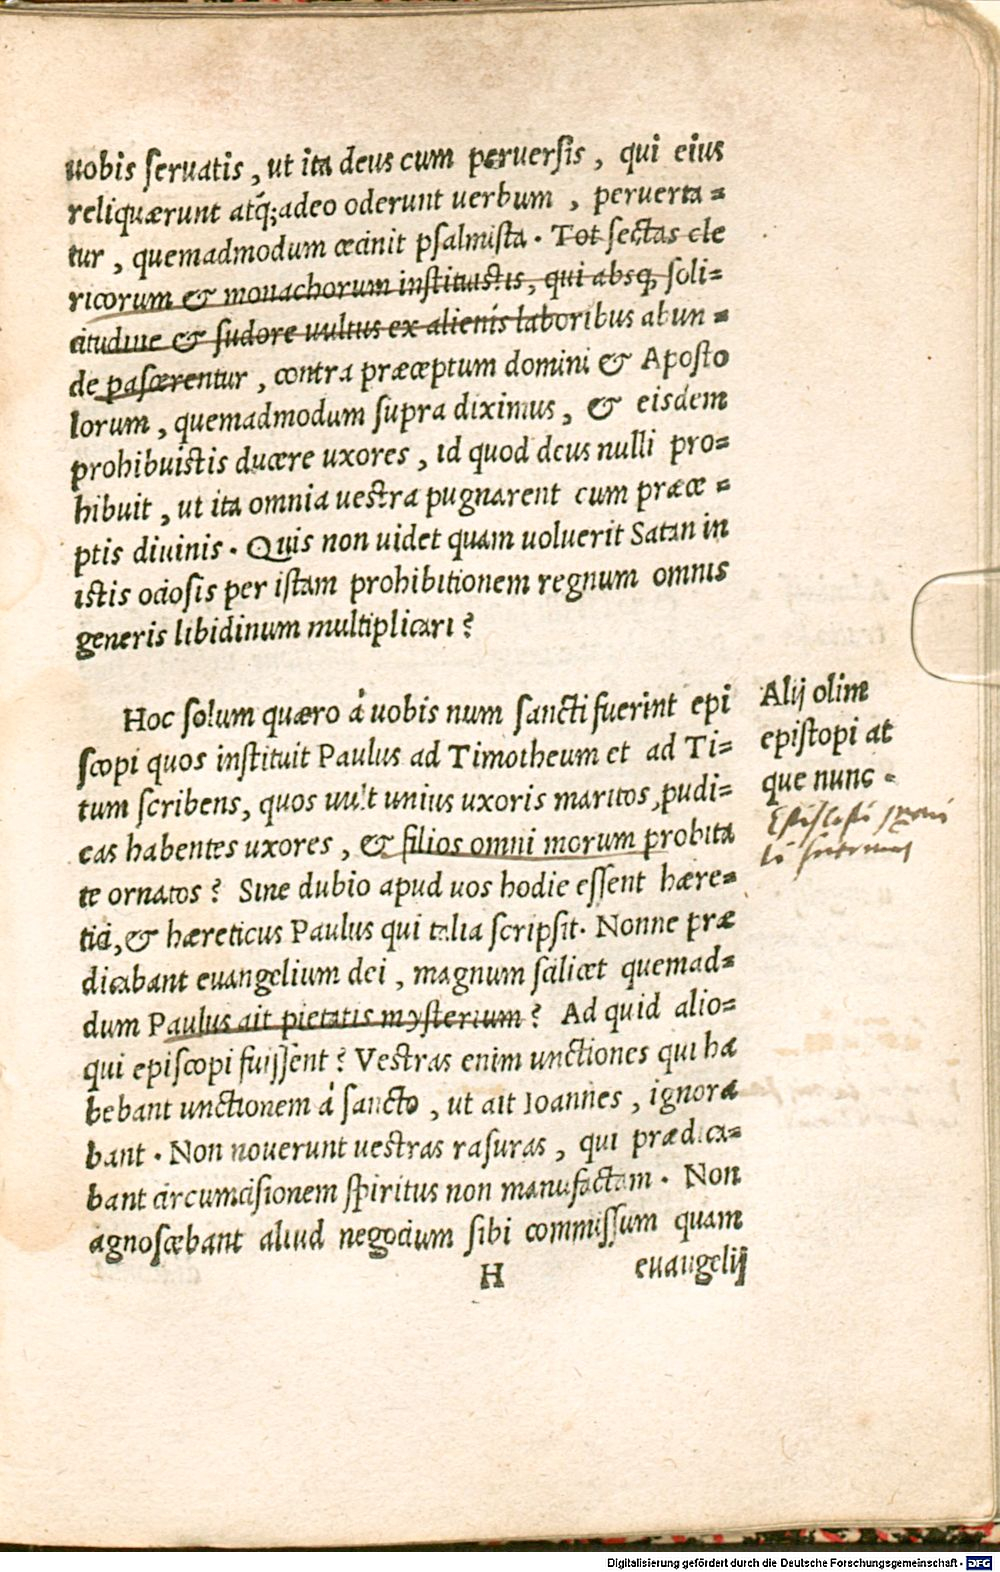 uobis seruatis, ut ita deus cum peruersis, qui eius
reliquærunt atq́;adeo oderunt uerbum, peruerta=
tur, quemadmodum cecinit psalmista. Tot sectas cle
ricorum & monachorum instituistis, qui absq; soli=
citudine & sudore uultus ex alienis laboribus abun=
de pascerentur, contra præceptum domini & Aposto
lorum, quemadmodum supra diximus, & eisdem
prohibuistis ducere uxores, id quod deus nulli pro=
hibuit, ut ita omnia uestra pugnarent cum præce=
ptis diuinis. Quis non uidet quam uoluerit Satan in
istis ociosis per istam prohibitionem regnum omnis
generis libidinum multiplicari?
Hoc solum quæro à uobis num sancti fuerint epi
scopi quos instituit Paulus ad Timotheum et ad Ti=
tum scribens, quos uult unius uxoris maritos, pudi=
cas habentes uxores, & filios omni morum probita
te ornatos? Sine dubio apud uos hodie essent hære=
tici, & hæreticus Paulus qui talia scripsit. Nonne præ
dicabant euangelium dei, magnum scilicet quemad=
dum Paulus ait pietatis mysterium? Ad quid alio=
qui episcopi fuissent? Vestras enim unctiones qui ha
bebant unctionem à sancto, ut ait Ioannes, ignora
bant. Non nouerunt uestras rasuras, qui prædica=
bant circumcisionem spiritus non manufactam. Non
agnoscebant aliud negocium sibi commissum quam
H euangelij
Alij olim
epistopi at
que nunc.